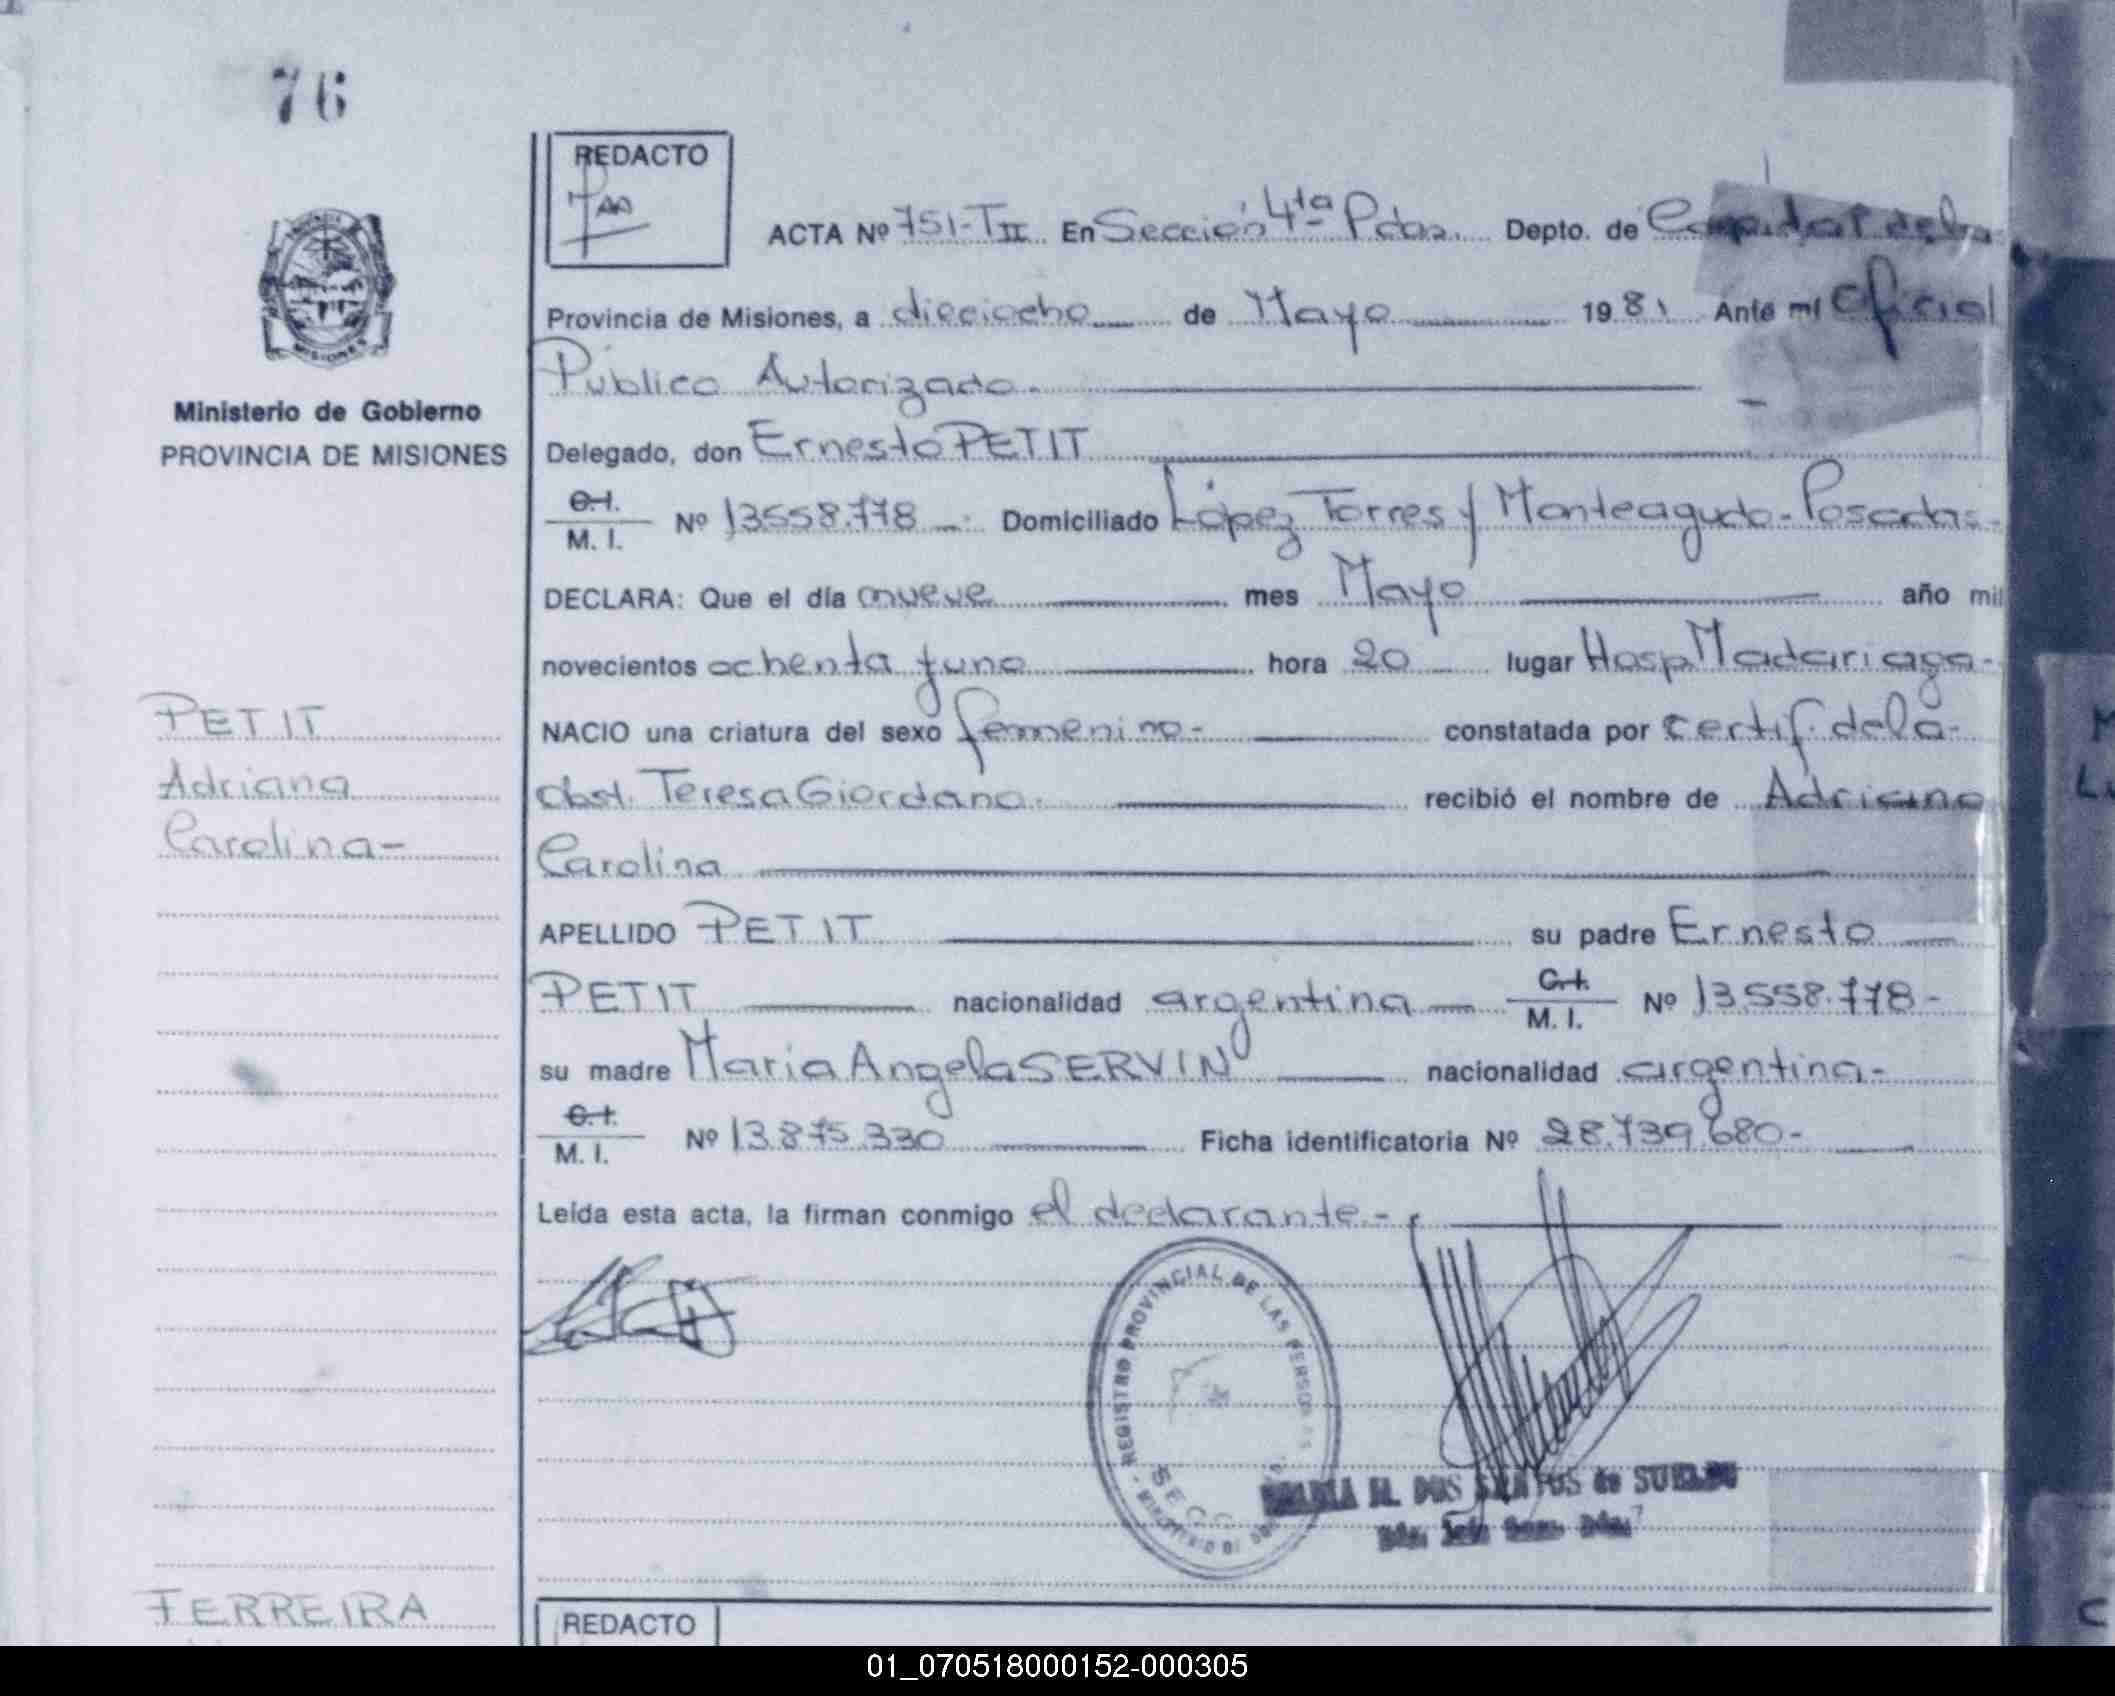 76
REDACTO
ACTA Nº 751-TII En Sección 4ta Pdas. Depto. de Capital de la
Provincia de Misiones, a dieciocho de Mayo 1981 Ante mí Oficial
Público Autorizado.
Ministerio de Gobierno
PROVINCIA DE MISIONES
Delegado, don Ernesto PETIT
C.I.
M. I. Nº 13558.778 Domiciliado López Torres y Monteagudo - Posadas-
DECLARA: Que el día nueve mes Mayo año mil
novecientos ochenta y uno hora 20 lugar Hosp Madariaga-
NACIO una criatura del sexo femenino- constatada por certif. de la-
obst. Teresa Giordano. recibió el nombre de Adriana
Carolina
PETIT
Adriana
Carolina-
APELLIDO PETIT su padre Ernesto
PETIT nacionalidad argentina C.I. M. I. Nº 13.558.778-
su madre Maria Angela SERVIN nacionalidad argentina-
C.I.
M. I. Nº 13.875.330 Ficha identificatoria Nº 28.739.680-
Leída esta acta, la firman conmigo el declarante.-
REGISTRO PROVINCIAL DE LAS PERSONAS
DOS SANTOS de SUELDO
FERREIRA
REDACTO
01_070518000152-000305